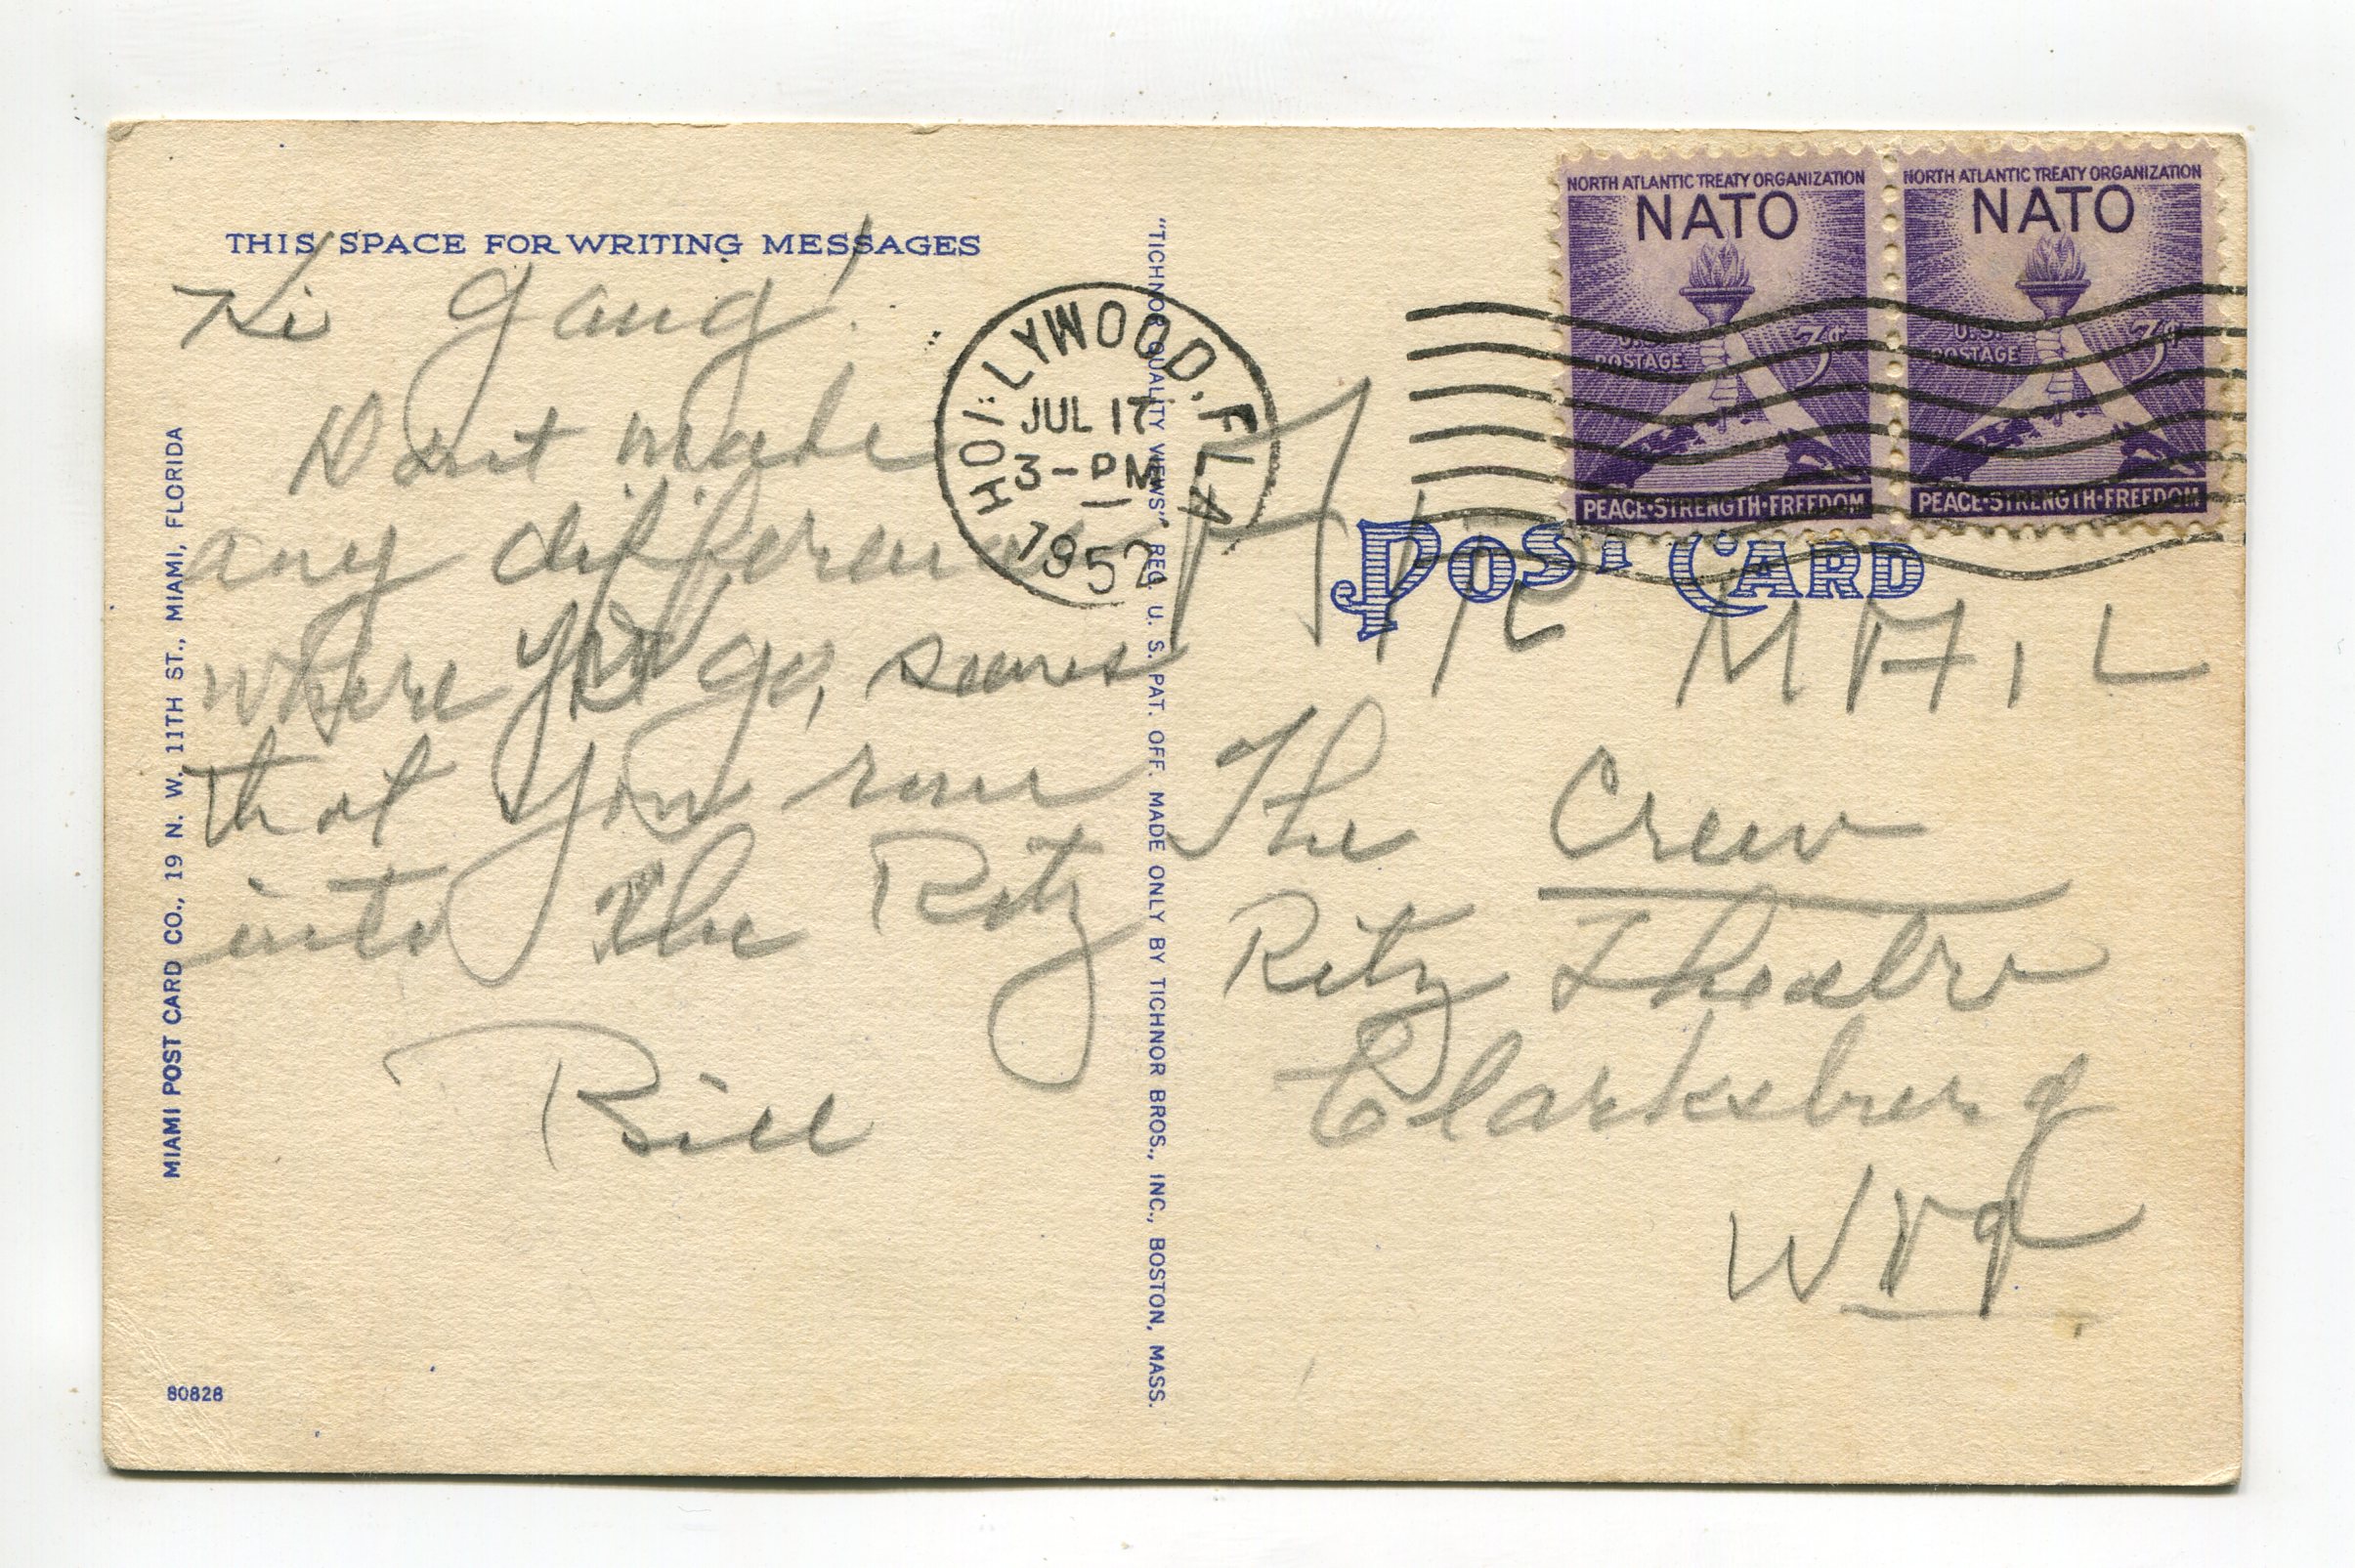 THIS SPACE FOR WRITING MESSAGES
Hi gang!
Dont make
any difference
where you go, seems
that you run
into the Ritz
Bill
MIAMI POST CARD CO., 19 N. W. 11TH ST., MIAMI, FLORIDA
80828
"TICHNOR QUALITY VIEWS" REG. U. S. PAT. OFF. MADE ONLY BY TICHNOR BROS., INC., BOSTON, MASS.
HOLLYWOOD, FLA
JUL 17
3-PM
1952
NORTH ATLANTIC TREATY ORGANIZATION
NATO
U.S.
POSTAGE
3¢
PEACE·STRENGTH·FREEDOM
NORTH ATLANTIC TREATY ORGANIZATION
NATO
U.S.
POSTAGE
3¢
PEACE·STRENGTH·FREEDOM
POST CARD
AIR MAIL
The Crew
Ritz Theatre
Clarksburg
W Va